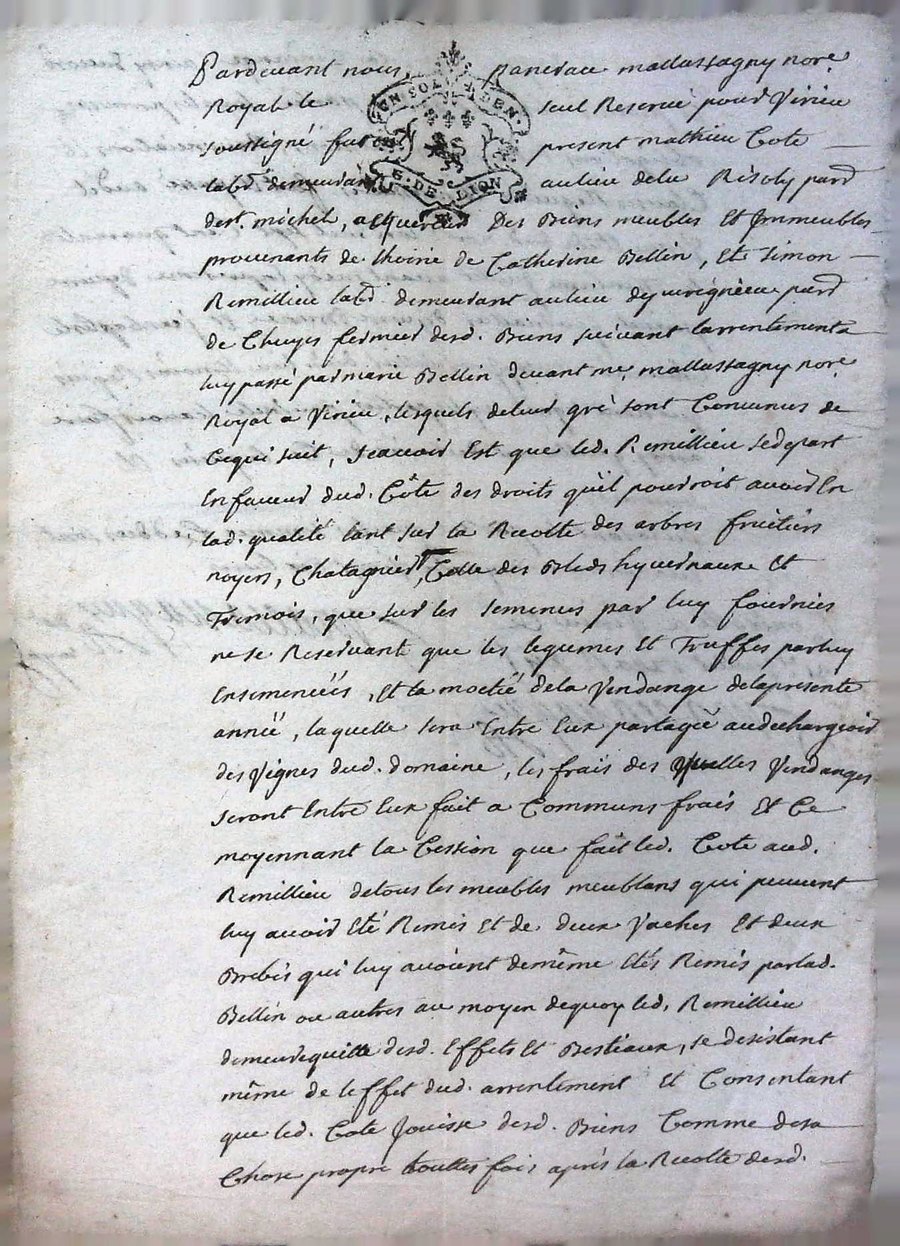 Pardevant nous, Pancrace mallassagny nore
Royal le seul Reservé pour Virieu
soussigné fut present mathieu Cote
labr demeurant au lieu de la Risoly parr
de st. michel, acquereur Des Biens meubles Et Jmmeubles
provenants de lhoirie de Catherine Bellin, Et Simon
Remillieu labr demeurant au lieu de parr
de Chuyes fermier desd. Biens suivant larrentement a
luy passé par marie Bellin devant me. mallassagny nore
Royal a Virieu, lesquels de leur gré sont Convenus de
Ce qui suit, sçavoir Est que led. Remillieu se depart
En faveur dud. Côte des droits qu'il pourroit avoir En
lad. qualité tant sur la Recolte des arbres fruitiers
noyers, Chatagniers, Celle des Bleds hyvernaux Et
Tremois, que sur les semences par luy fournies
ne se Reservant que les legumes Et Truffes par luy
Ensemencées, Et la moitié de la Vendange de la presente
année, laquelle sera Entre Eux partagée au dechargeoir
des Vignes dud. domaine, les frais des quelles Vendanges
seront Entre Eux fait a Communs frais Et Ce
moyennant la Cession que fait led. Cote aud.
Remillieu de tous les meubles meublans qui peuvent
luy avoir Eté Remis Et de deux Vaches Et deux
Brebis qui luy avoient de même Etés Remis par lad.
Bellin ou autres au moyen de quoy led. Remillieu
demeure quitte desd. Effets Et Bestiaux, se desistant
même de leffet dud. arrentement Et Consentant
que led. Cote Jouisse desd. Biens Comme de sa
Chose propre touttes fois après la Recolte desd.
G. DE LION